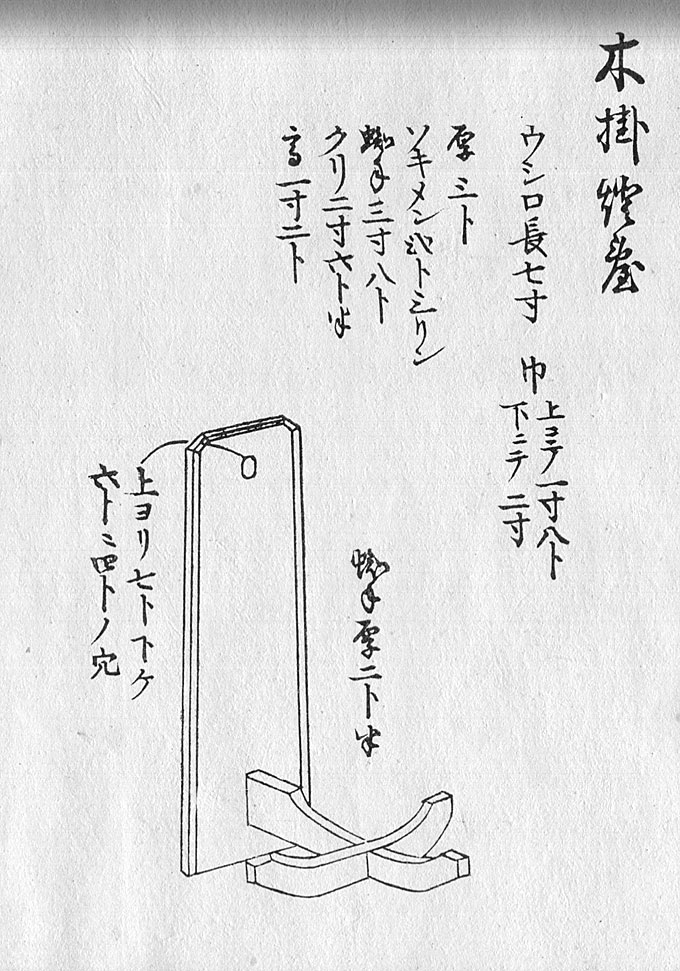 木掛燈臺
ウシロ長七寸 巾 上ニテ一寸八ト
下ニテ二寸
厚三ト
ソキメン弐ト三リン
蜘手三寸八ト
クリ二寸六ト半
高一寸二ト
蜘手厚二ト半
上ヨリ七ト下ケ
六ト ニ四トノ穴